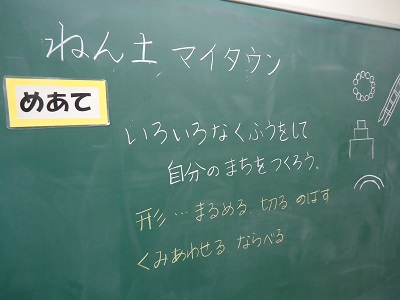 ねん土 マイタウン
めあて
いろいろなくふうをして
自分のまちをつくろう。
形…まるめる、切る のばす
くみあわせる、ならべる